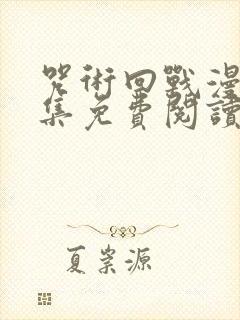 咒術回戰漫
集免費閱讀
夏柴源